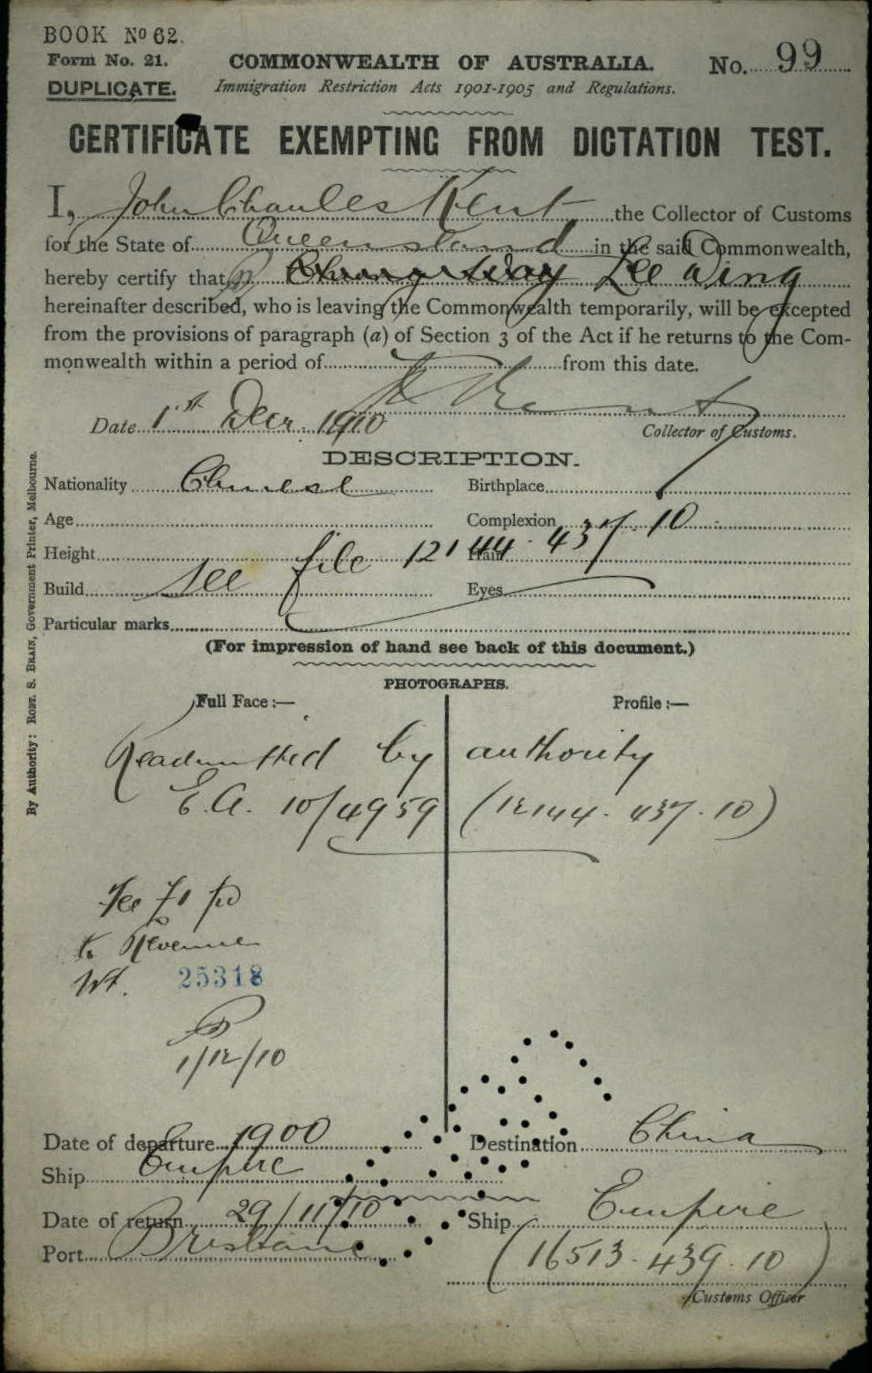 BOOK No 62.
Form No. 21.
COMMONWEALTH OF AUSTRALIA.
No. 99
DUPLICATE.
Immigration Restriction Acts 1901-1905 and Regulations.
CERTIFICATE EXEMPTING FROM DICTATION TEST.
I, John Charles Kent the Collector of Customs
for the State of Queensland in the said Commonwealth,
hereby certify that Lee Wing
hereinafter described, who is leaving the Commonwealth temporarily, will be excepted
from the provisions of paragraph (a) of Section 3 of the Act if he returns to the Com-
monwealth within a period of from this date.
Date 1st Decr. 1910
Collector of Customs.
DESCRIPTION.
Nationality Chinese Birthplace
Age Complexion
Height Hair
Build Eyes
See file 12144.437.10
Particular marks
(For impression of hand see back of this document.)
PHOTOGRAPHS.
Full Face :— Profile :—
Readmitted by authority
E.A. 10/4959 (12144.437.10)
Fee £1 pd
to Revenue
25318
1/12/10
Date of departure 1900 Destination China
Ship Empire
Date of return 29/11/10 Ship Empire
Port Brisbane (16513.439.10)
Customs Officer
By Authority: ROBT. S. BRAIN, Government Printer, Melbourne.